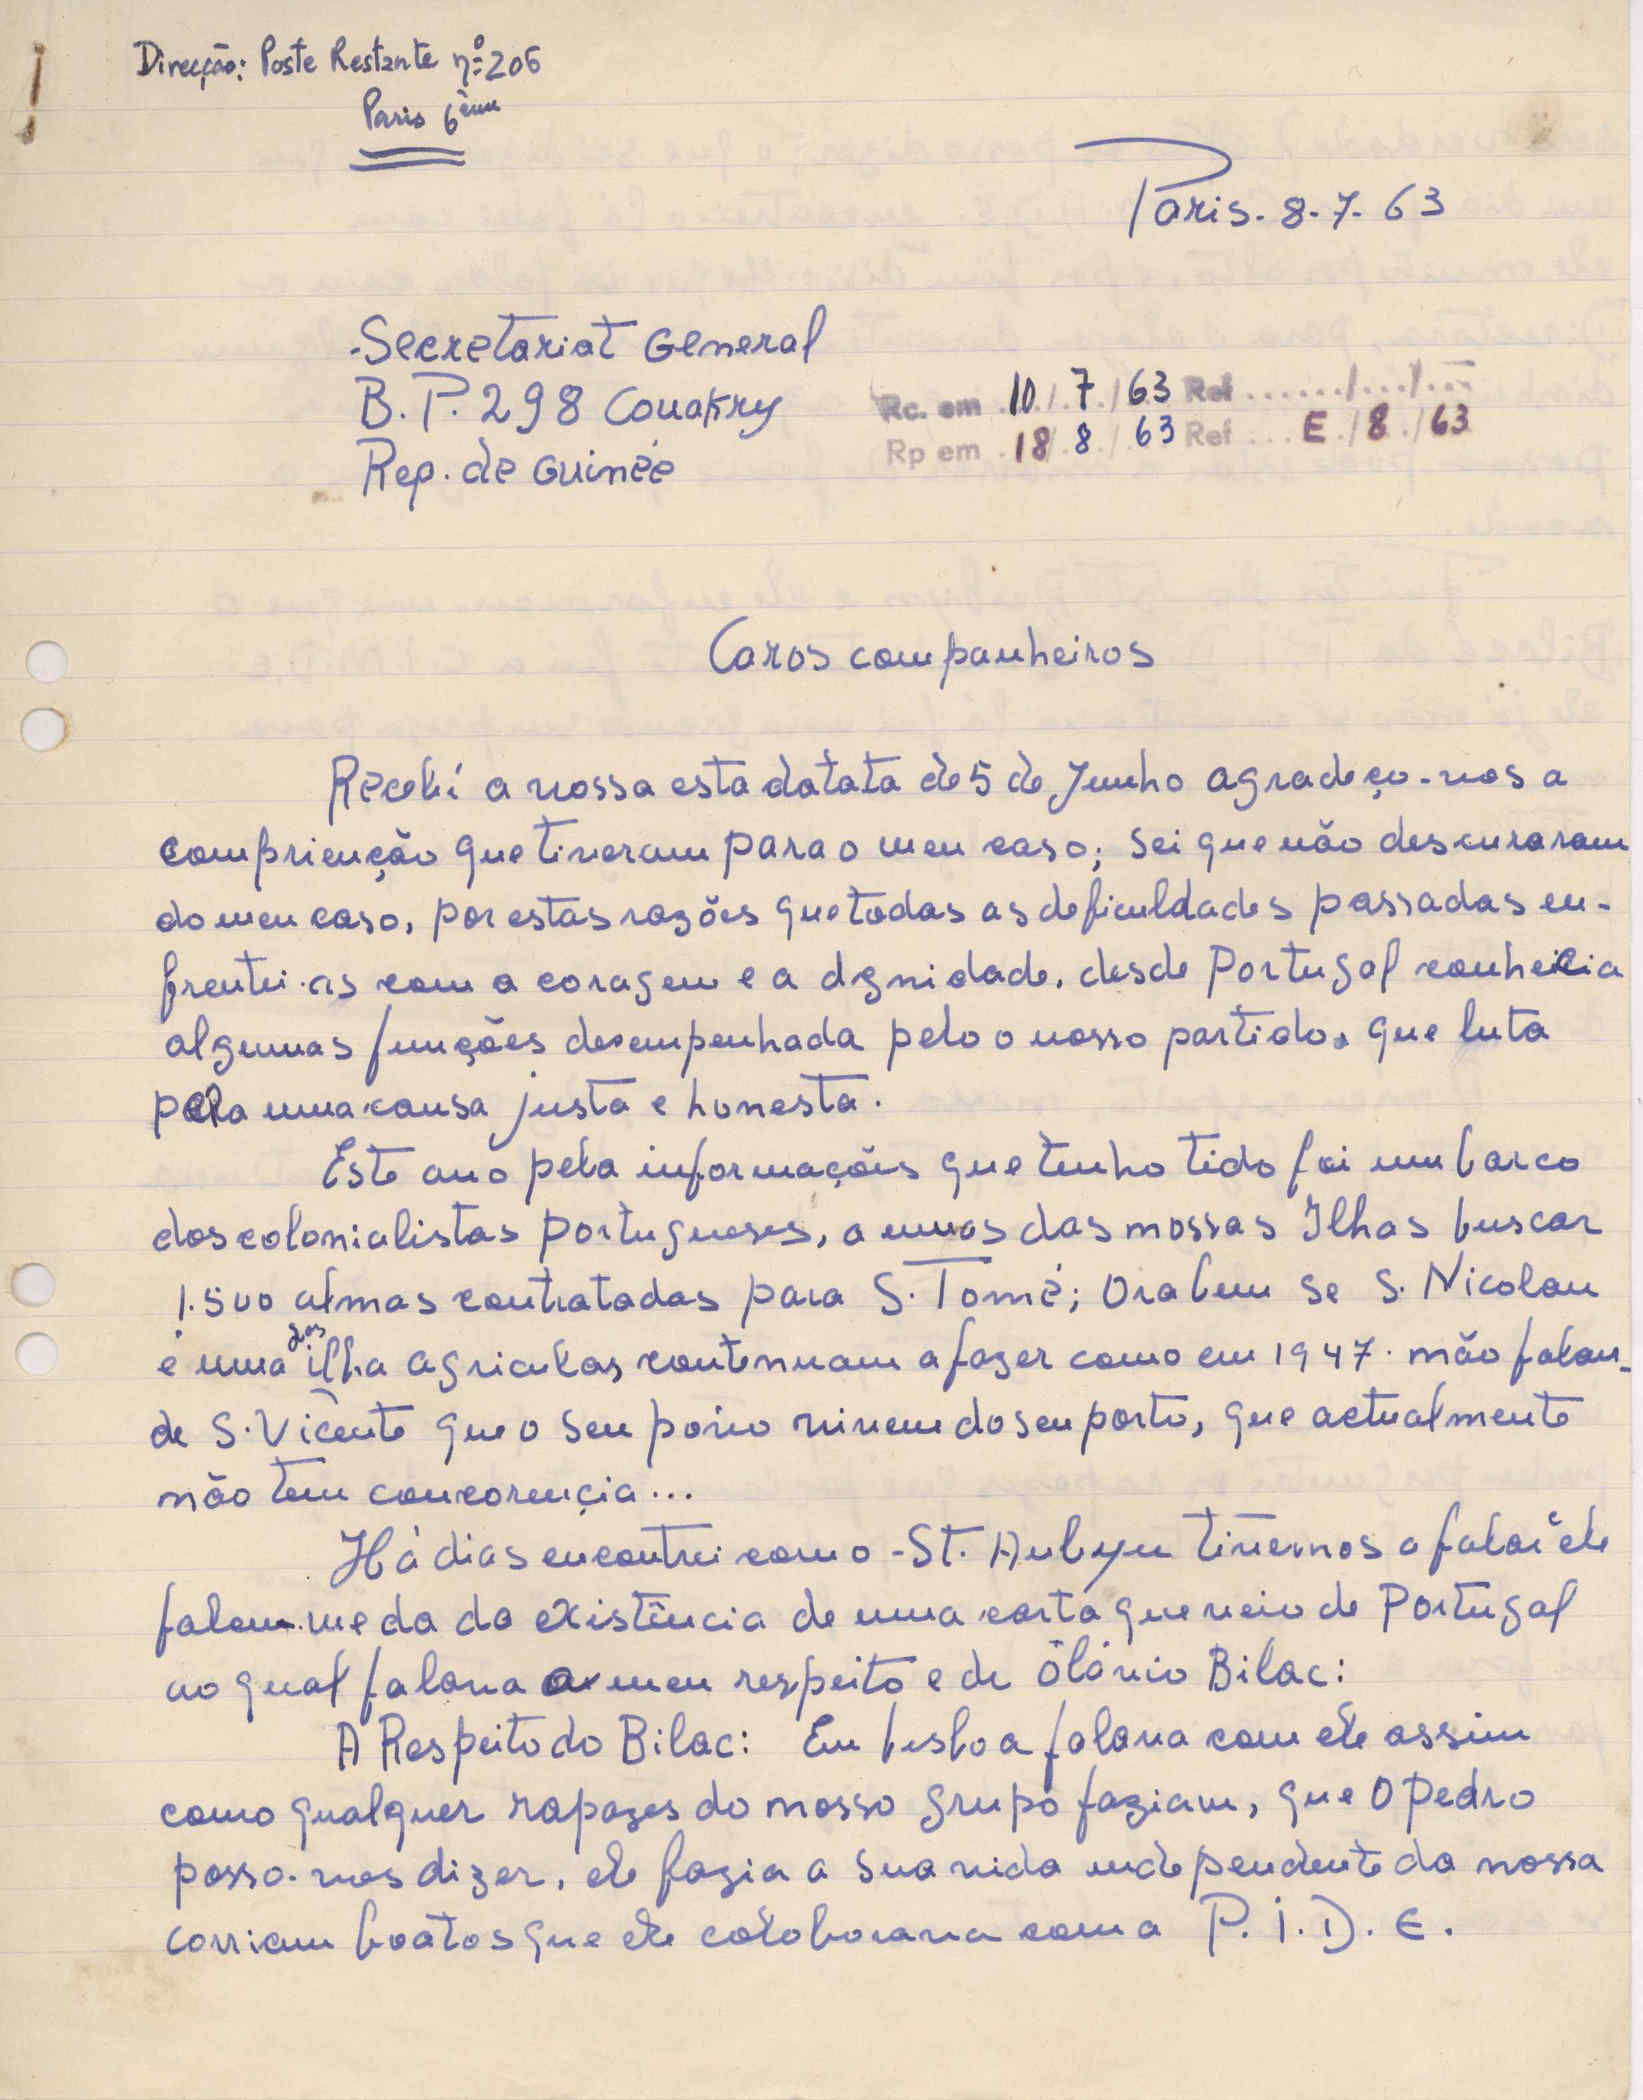 Direcção: Poste Restante nº 206
Paris 6ème
Paris - 8-7-63
-Secretariat General
B.P. 298 Conakry
Rep. de Guinée
Rc. em 10/7/63 Ref ....../.../...
Rp em 18/8/63 Ref ... E./8./63
Caros companheiros
Recebi a vossa esta datata de 5 de Junho agradeço-vos a
comprienção que tiveram para o meu caso; sei que não descuraram
do meu caso, por estas razões que todas as deficuldades passadas en-
frentei-as com a coragem e a dignidade, desde Portugal conhecia
algumas funções desempenhada pelo o nosso partido, que luta
pela uma causa justa e honesta.
Este ano pela informações que tenho tido foi um barco
dos colonialistas portugueses, a umas das nossas Ilhas buscar
1.500 almas contratadas para S. Tomé; Ora bem se S. Nicolau
é uma das ilha agriculas, contenuam a fazer como em 1947. não falan-
de S. Vicente que o seu povo vivem do seu porto, que actualmente
não tem concorencia...
Há dias encontrei com o -St. Aubyn tivemos a falar ele
falou-me da da existência de uma carta que veio de Portugal
ao qual falava a meu respeito e de Olávio Bilac:
A Respeito do Bilac: Em Lisboa falava com ele assim
como qualquer rapazes do nosso grupo faziam, que o Pedro
posso-vos dizer, ele fazia a sua vida independente da nossa
corriam boatos que ele colaborava com a P.I.D.E.